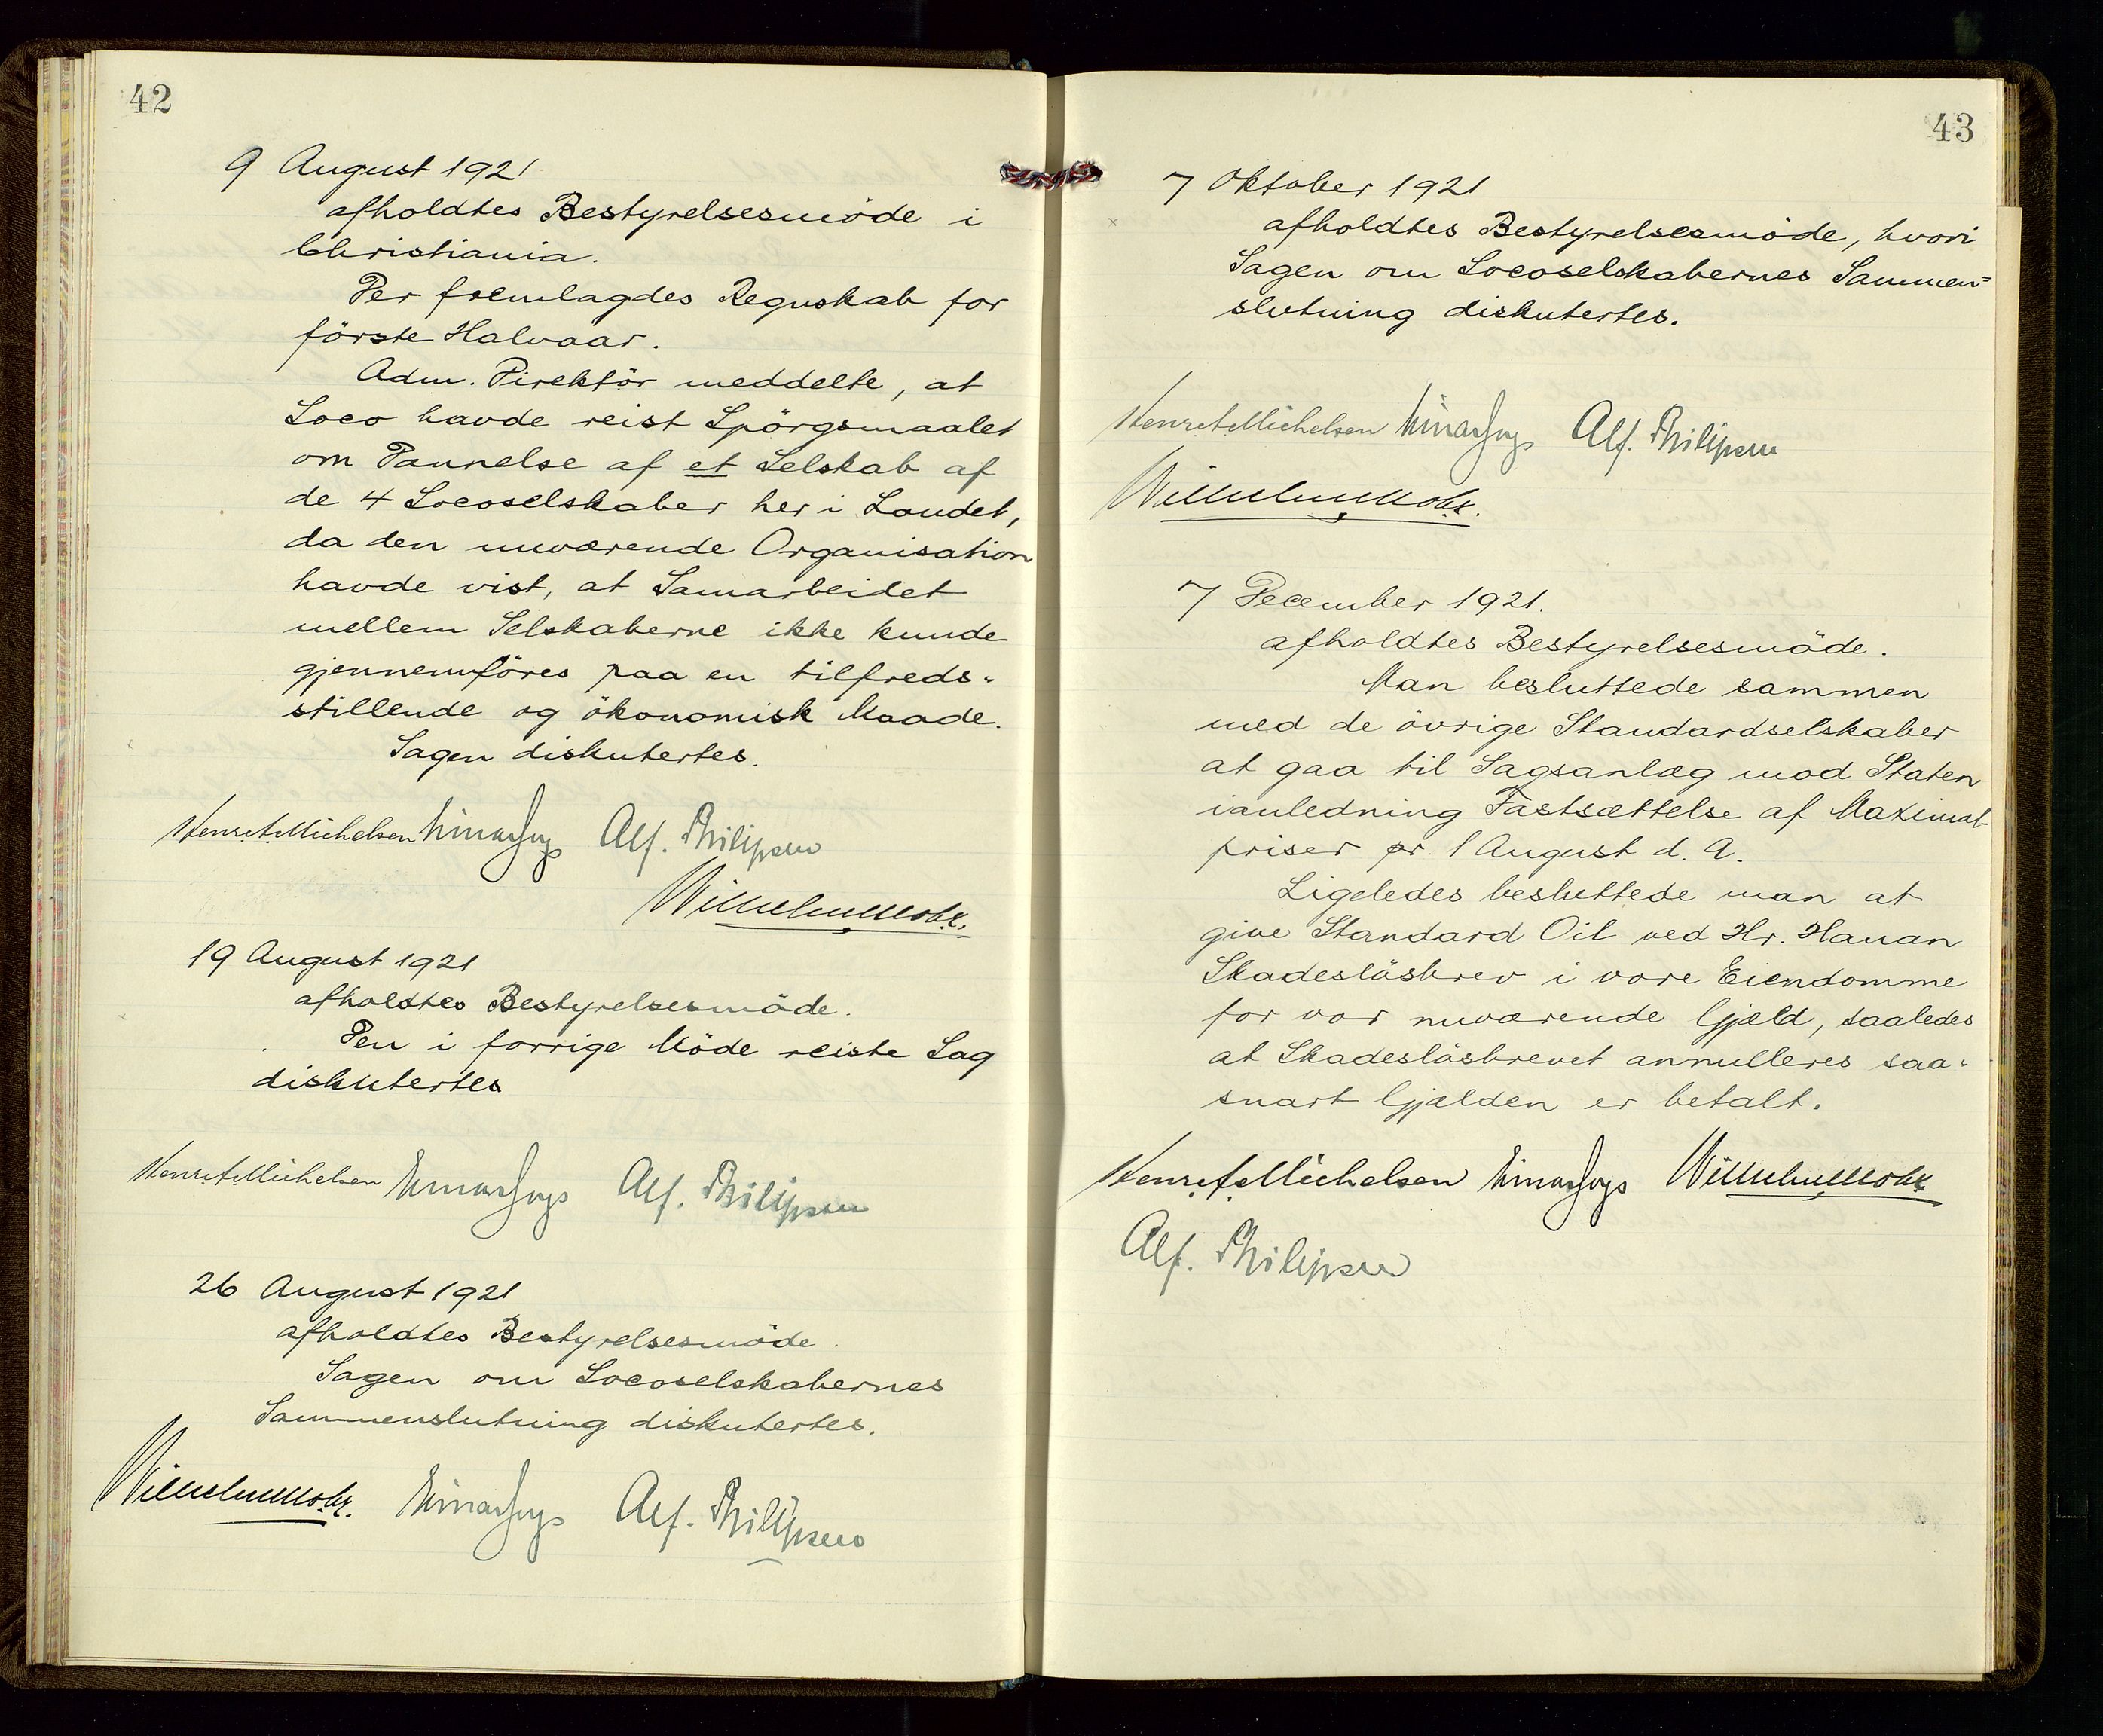 42
9 August 1921
afholdtes Bestyrelsesmöde i
Christiania.
Der fremlagdes Regnskab for
förste Halvaar.
Adm. Direktör meddelte, at
Loco havde reist Spörgsmaalet
om Dannelse af et Selskab af
de 4 Locoselskaber her i Landet,
da den nuværende Organisation
havde vist, at Samarbeidet
mellem Selskaberne ikke kunde
gjennemföres paa en tilfreds-
stillende og ökonomisk Maade.
Sagen diskutertes.
Henr. Michelsen Alf. Philipsen
Wilhelm Mohr.
19 August 1921
afholdtes Bestyrelsesmöde.
Den i forrige Möde reiste Sag
diskutertes
Henr. Michelsen Alf. Philipsen
26 August 1921
afholdtes Bestyrelsesmöde.
Sagen om Locoselskabernes
Sammenslutning diskutertes.
Wilhelm Mohr. Alf. Philipsen
43
7 Oktober 1921
afholdtes Bestyrelsesmöde, hvori
Sagen om Locoselskabernes Sammen=
slutning diskutertes.
Henr. Michelsen Alf. Philipsen
Wilhelm Mohr.
7 December 1921.
afholdtes Bestyrelsesmöde.
Man besluttede sammen
med de övrige Standardselskaber
at gaa til Sagsanlæg mod Staten
ianledning Fastsættelse af Maximal-
priser pr. 1 August d. A.
Ligeledes besluttede man at
give Standard Oil ved Hr. Hanan
Skadeslösbrev i vore Eiendomme
for vor nuværende Gjæld, saaledes
at Skadeslösbrevet annulleres saa-
snart Gjælden er betalt.
Henr. Michelsen Wilhelm Mohr
Alf. Philipsen